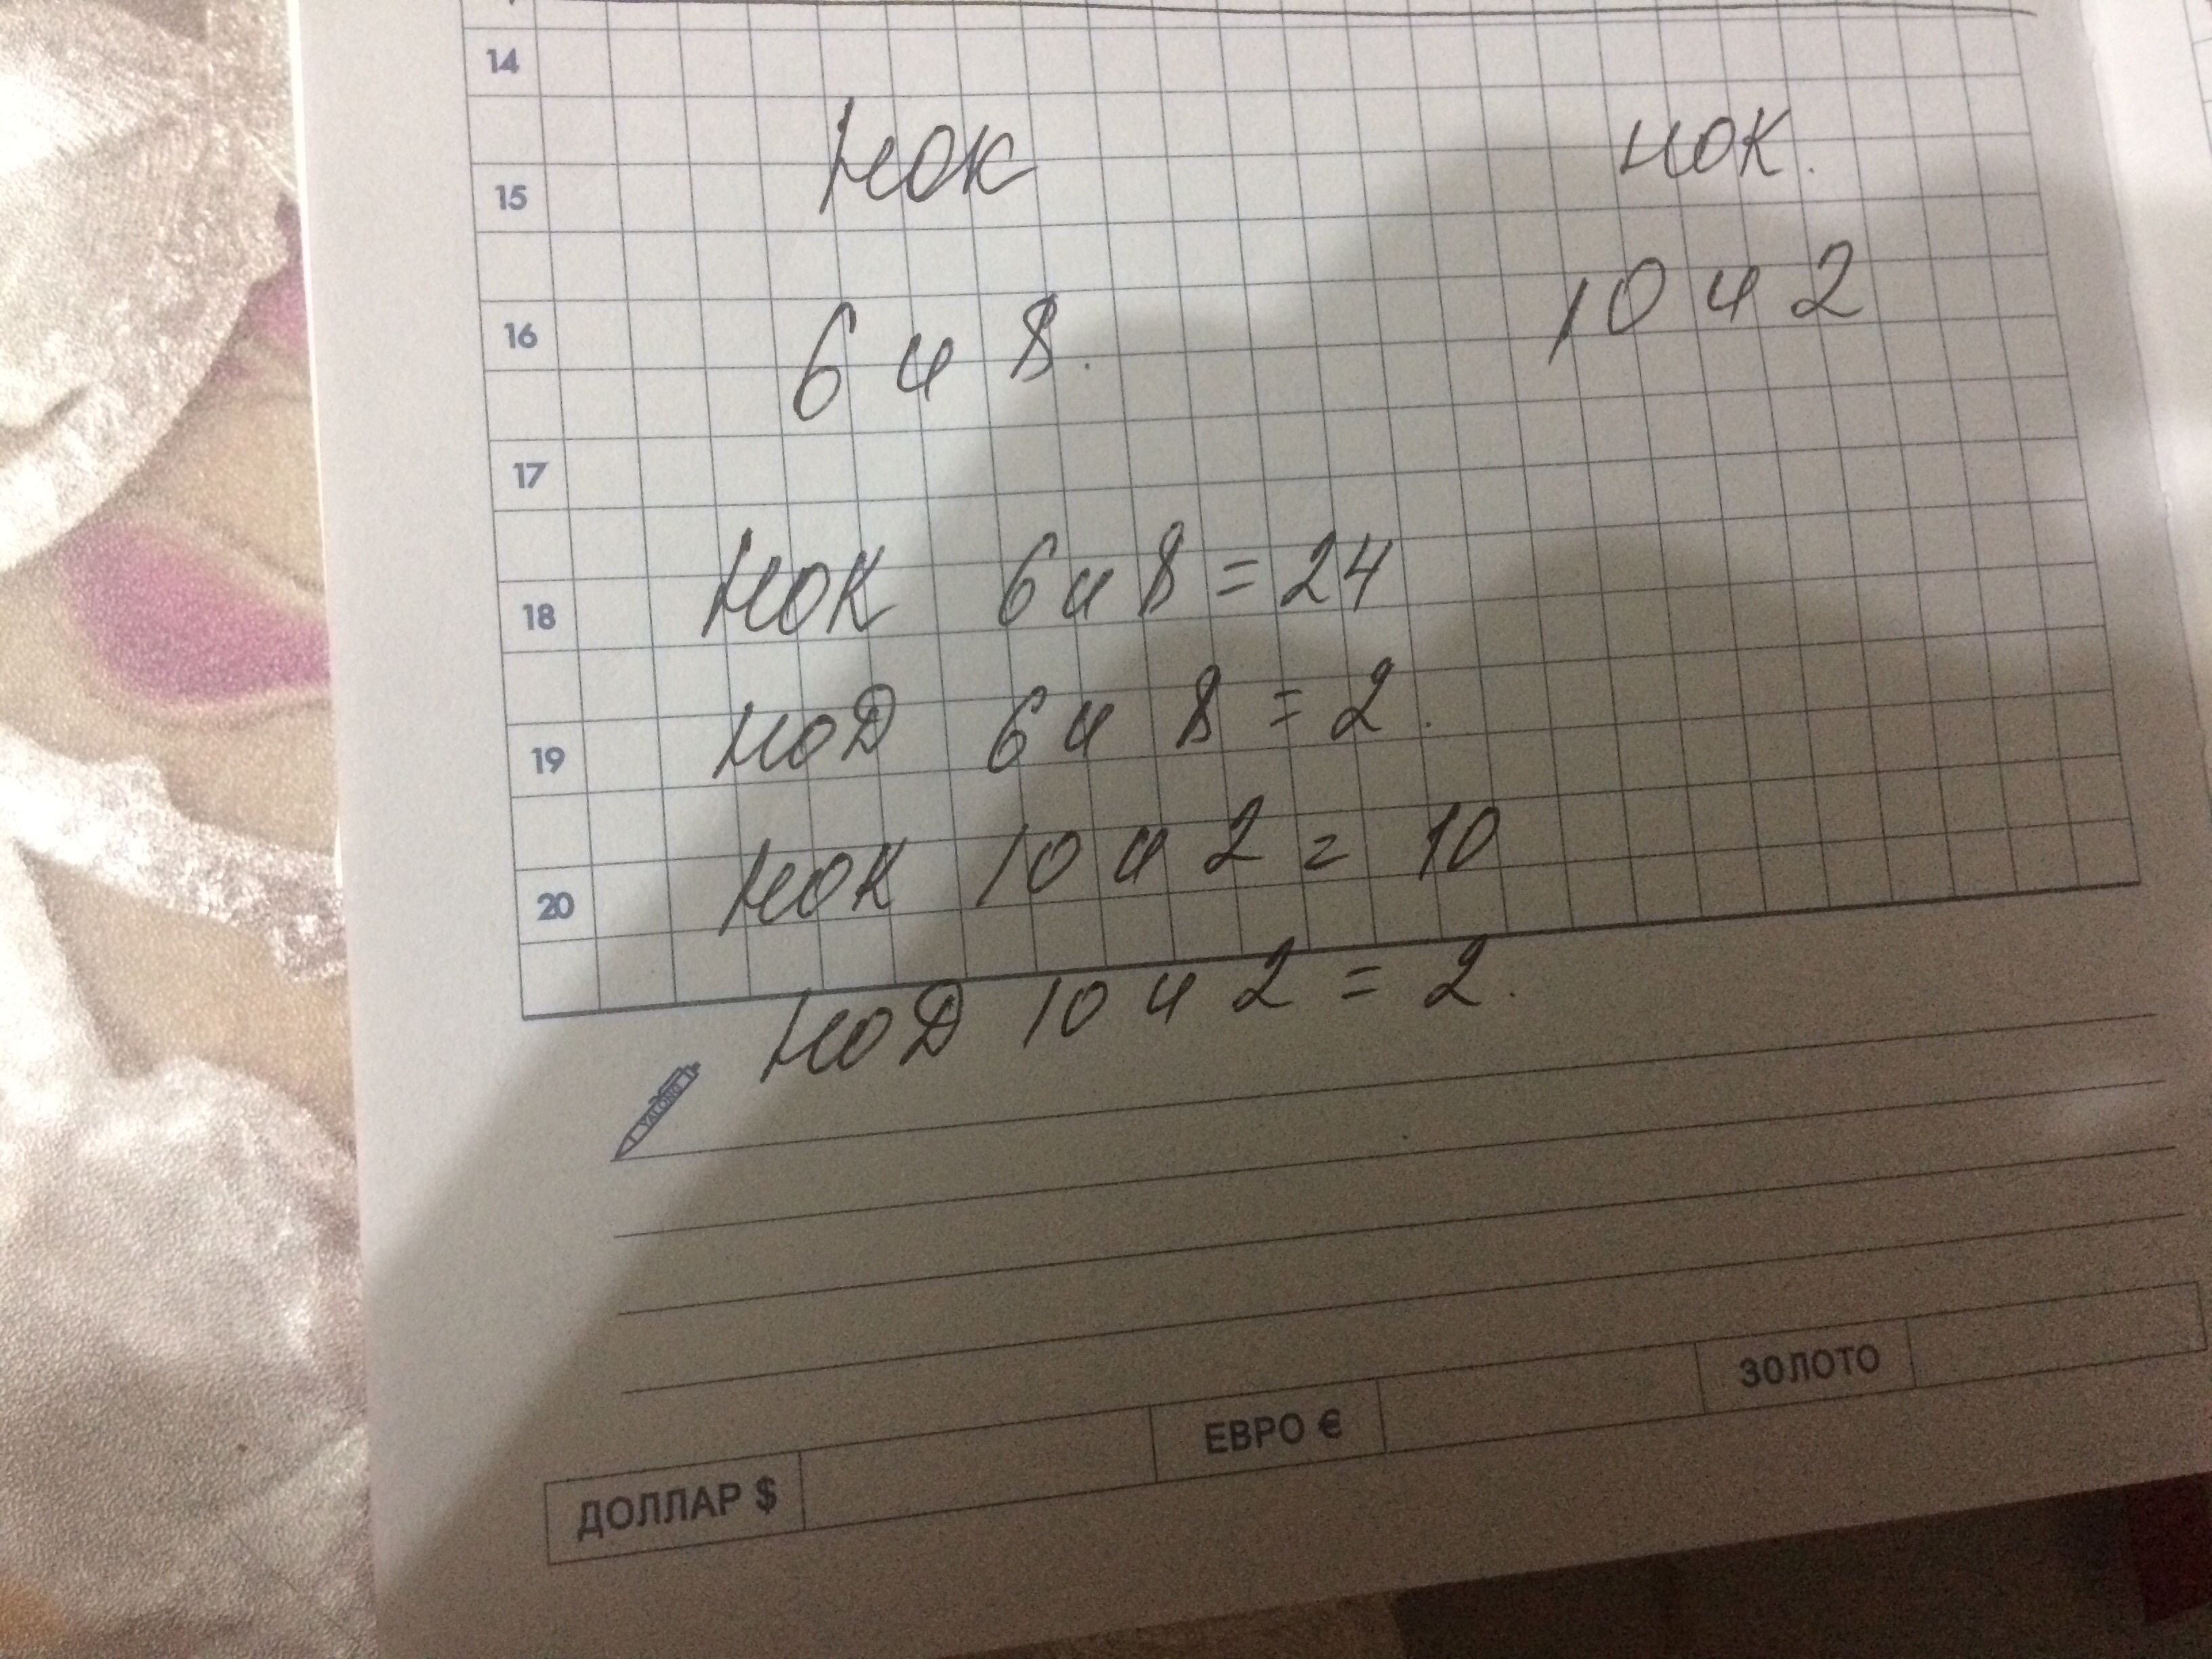 14
НОК НОК.
15
6 и 8. 10 и 2
16
17
НОК 6 и 8 = 24
18
НОД 6 и 8 = 2.
19
НОК 10 и 2 = 10
20
НОД 10 и 2 = 2.
YALONG
ДОЛЛАР $ ЕВРО € ЗОЛОТО